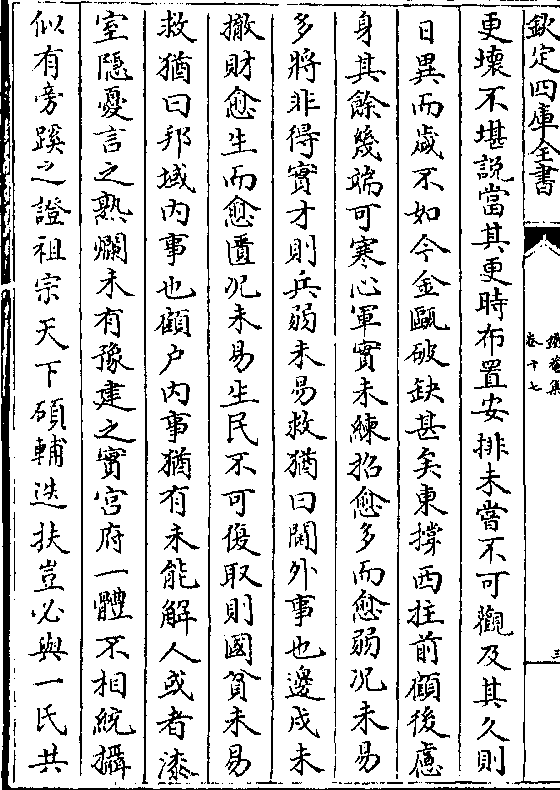 欽定四庫全書
卷十七
三
更壞不堪說當其更時布置安排未嘗不可觀及其久則
日異而歲不如今金甌破缺甚矣東撐西拄前顧後慮
身其餘幾端可寒心軍實未練招愈多而愈弱况未易
多將非得實才則兵弱未易救猶曰閫外事也邊戍未
撤財愈生而愈匱况未易生民不可優取則國貧未易
救猶曰邦域内事也顧户内事猶有未能解人或者漆
室隱憂言之熟爛未有豫建之實宫府一體不相統攝
似有旁蹊之證祖宗天下碩輔迭扶豈必與一民共